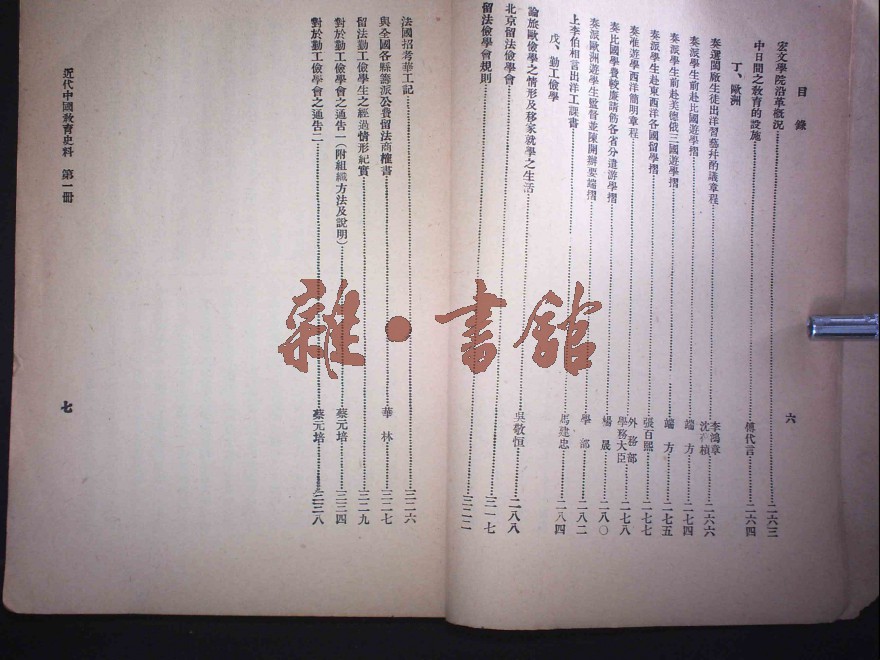 目錄
六
宏文學院沿革概況 二六三
中日間之教育的設施 傅代言 二六四
丁、歐洲
奏選閩廠生徒出洋習藝幷酌議章程 李鴻章 沈葆楨 二六六
奏派學生前赴比國遊學摺 端方 二七四
奏派學生前赴美德俄三國遊學摺 端方 二七五
奏派學生赴東西洋各國留學摺 張百熙 二七七
奏准遊學西洋簡明章程 外務部 學務大臣 二七八
奏比國學費較廉請飭各省分遣游學摺 楊晟 二八〇
奏派歐洲遊學生監督並陳開辦要端摺 學部 二八二
上李伯相言出洋工課書 馬建忠 二八四
戊、勤工儉學
論旅歐儉學之情形及移家就學之生活 吳敬恒 二八八
北京留法儉學會 三一七
留法儉學會規則
法國招考華工記 三二六
與全國各縣籌派公費留法商榷書 華林 三二七
留法勤工儉學生之經過情形紀實 三二九
對於勤工儉學會之通告一(附組織方法及說明) 蔡元培 三三四
對於勤工儉學會之通告二 蔡元培 三三八
近代中國教育史料 第一冊
七
雜·書館